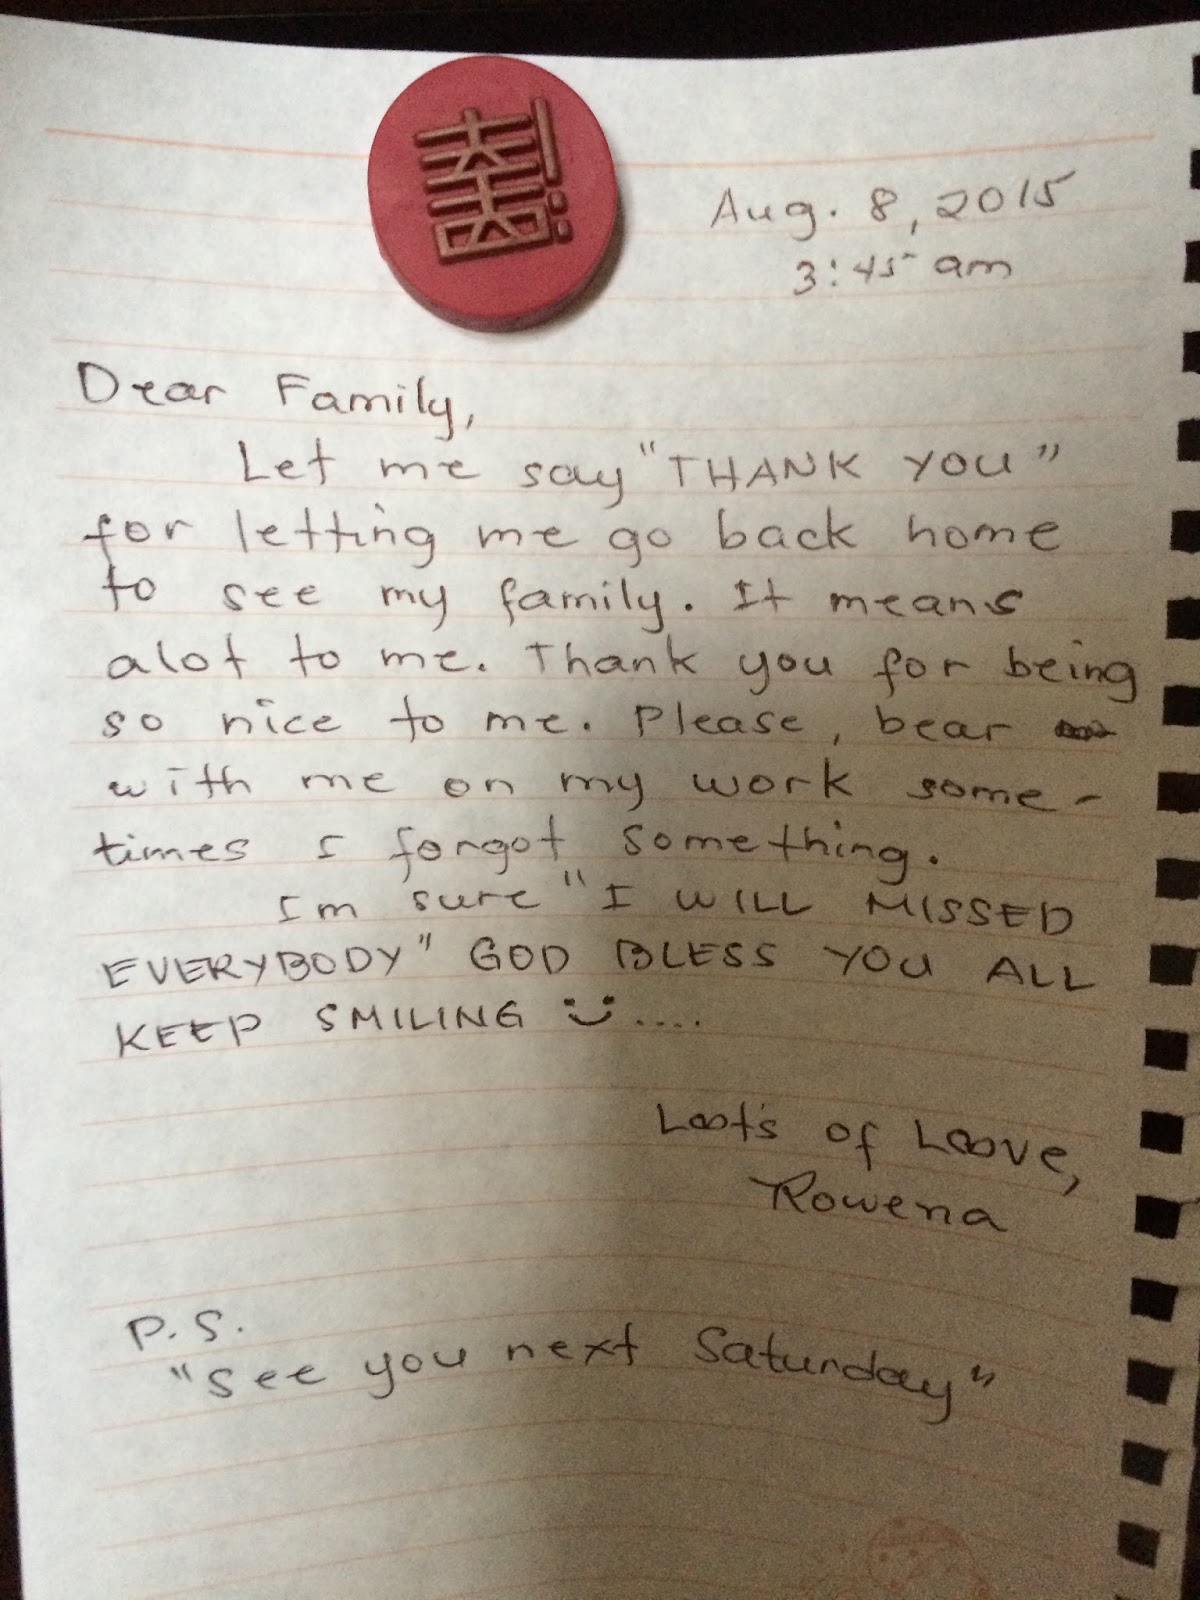 Aug. 8, 2015
3:45 am
Dear Family,
Let me say "THANK YOU"
for letting me go back home
to see my family. It means
alot to me. Thank you for being
so nice to me. Please, bear
with me on my work some-
times I forgot something.
Im sure "I WILL MISSED
EVERYBODY" GOD BLESS YOU ALL
KEEP SMILING ....
Loots of Loove,
Rowena
P.S.
"See you next Saturday"